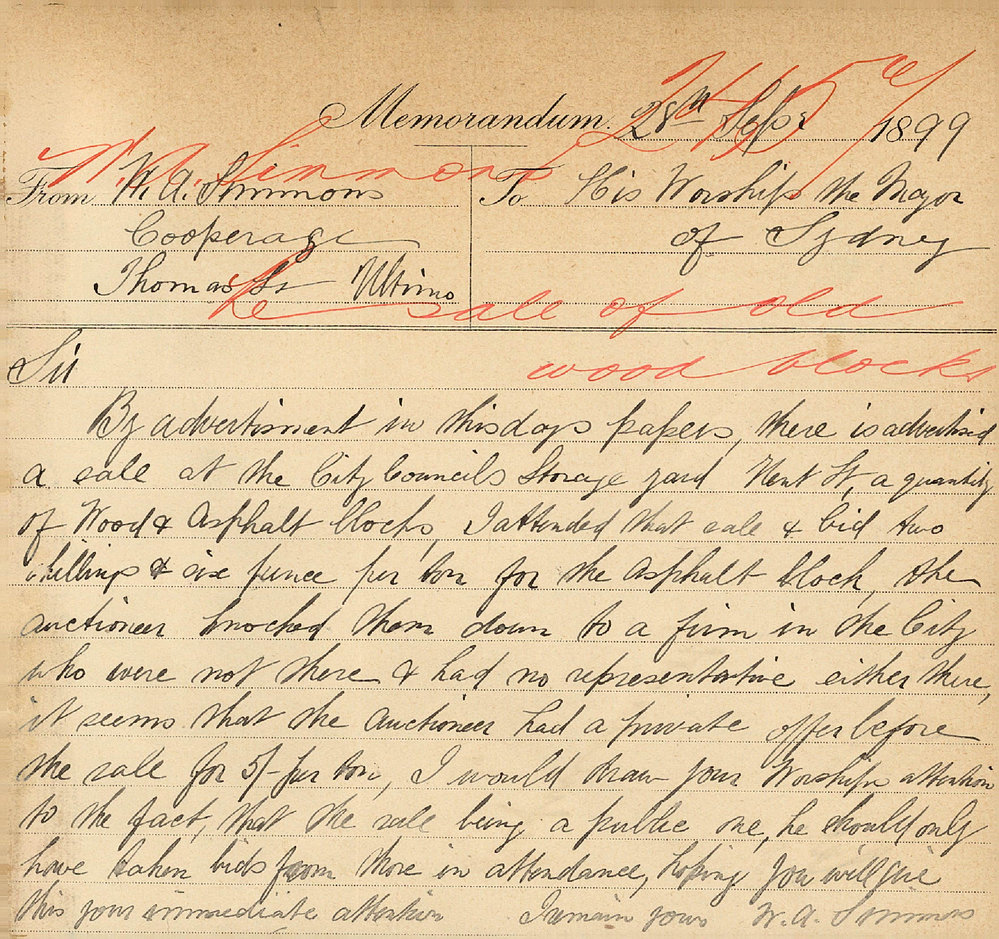 2457
Memorandum. 28th Sept 1899
W. A. Simmons
From W. A. Simmons
Cooperage
Thomas St Ultimo
To His Worship the Mayor
of Sydney
Re sale of old
wood blocks
Sir
By advertisment in thisdays papers, there is advertised
a sale at the City Councils Storage yard Kent St, a quantity
of Wood & Asphalt blocks, I attended that sale & bid two
shillings & six pence per ton for the Asphalt block, the
auctioneer knocked them down to a firm in the City
who were not there & had no representative either there,
it seems that the Auctioneer had a private offer before
the sale for 5/- per ton, I would draw your Worships attention
to the fact, that the sale being a public one, he should only
have taken bids from those in attendance, hoping you will give
this your immediate attention I remain yours W. A. Simmons